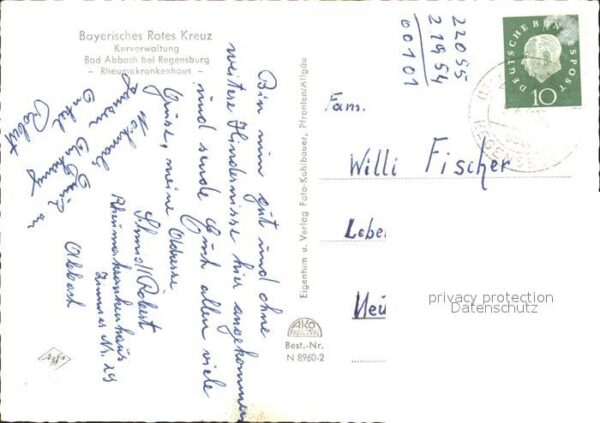 Bayerisches Rotes Kreuz
Kurverwaltung
Bad Abbach bei Regensburg
- Rheumakrankenhaus -
Bin nun gut und ohne
weitere Hindernisse hier angekommen
und sende Euch allen viele
Grüße, meine Adresse
Schmidl Robert
Rheumakrankenhaus
Zimmer Nr. 29
Abbach
Nochmals Gruß an
Onkel
Robert
Eigentum u. Verlag Foto-Kohlbauer, Pfronten/Allgäu
AKO
Best.-Nr.
N 8960-2
22055
21954
00101
DEUTSCHE BUNDESPOST
10
Fam.
Willi Fischer
privacy protection
Datenschutz